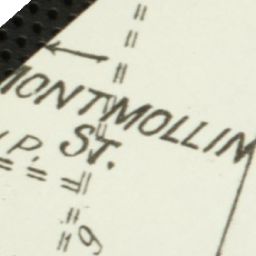 MONTMOLLIN
ST.
P.
6